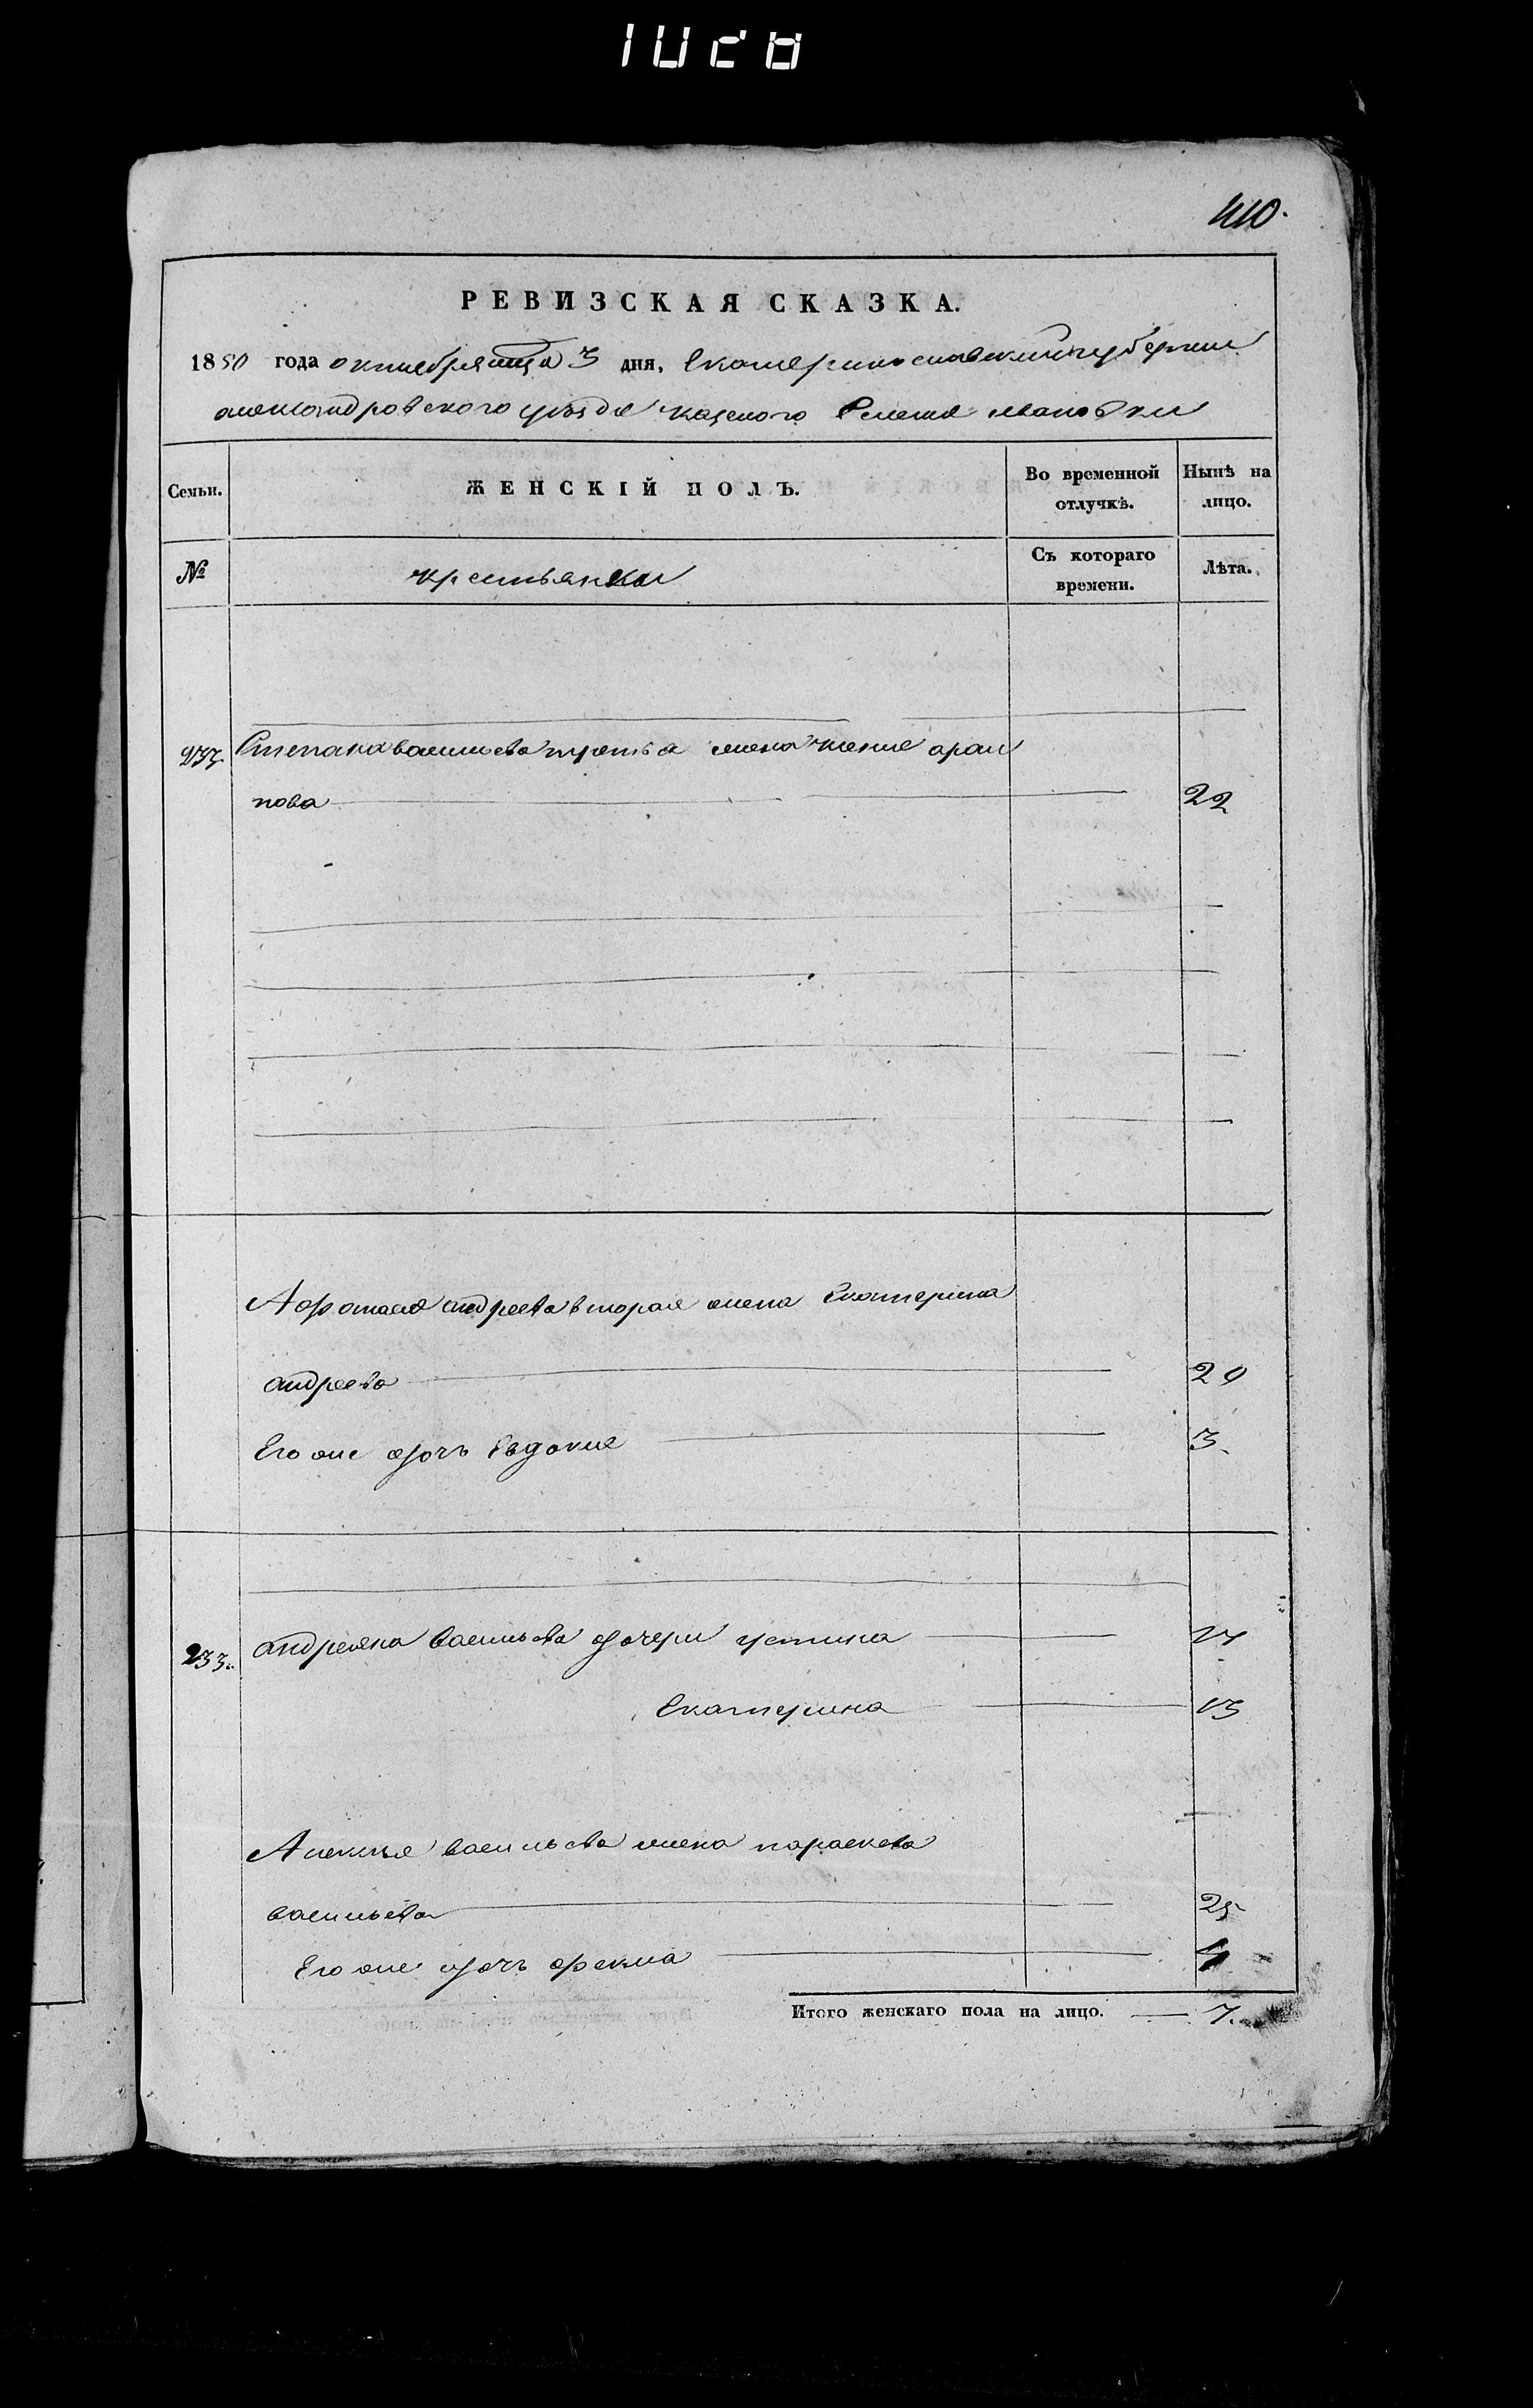 410.
РЕВИЗСКАЯ СКАЗКА.
1850 года октября мца 3 дня, Екатеринославской губернии
александровского уезда казеного Селения ивановки
Семьи. ЖЕНСКІЙ ПОЛЪ. Во временной отлучкѣ. Нынѣ на лицо.
№ крестьянки Съ котораго времени. Лѣта.
Степана васильева третья жена
нова 22
Афонасия андреева вторая жена Екатерина
андреева 29
Его же дочь Евдокия 3.
233. андреяна васильева дочери устина 17
Екатерина 13
Алексея васильева жена параскева
васильева 25
Его же дочь фекла 4
Итого женскаго пола на лицо. 7.